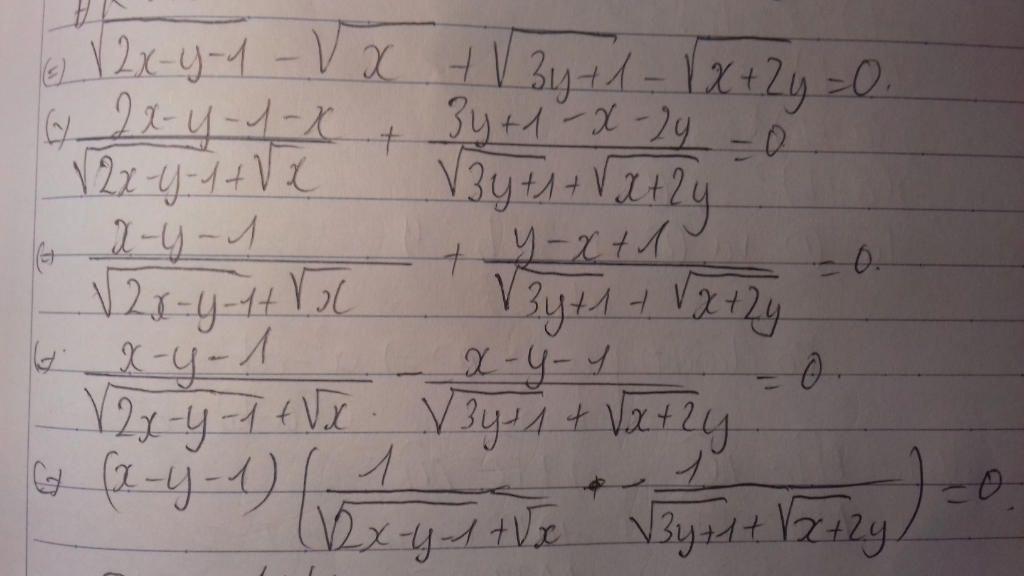 ⇔ √(2x-y-1) - √x + √(3y+1) - √(x+2y) = 0.
⇔ (2x-y-1-x)/(√(2x-y-1)+√x) + (3y+1-x-2y)/(√(3y+1)+√(x+2y)) = 0
⇔ (x-y-1)/(√(2x-y-1)+√x) + (y-x+1)/(√(3y+1)+√(x+2y)) = 0.
⇔ (x-y-1)/(√(2x-y-1)+√x) - (x-y-1)/(√(3y+1)+√(x+2y)) = 0.
⇔ (x-y-1)(1/(√(2x-y-1)+√x) - 1/(√(3y+1)+√(x+2y))) = 0.